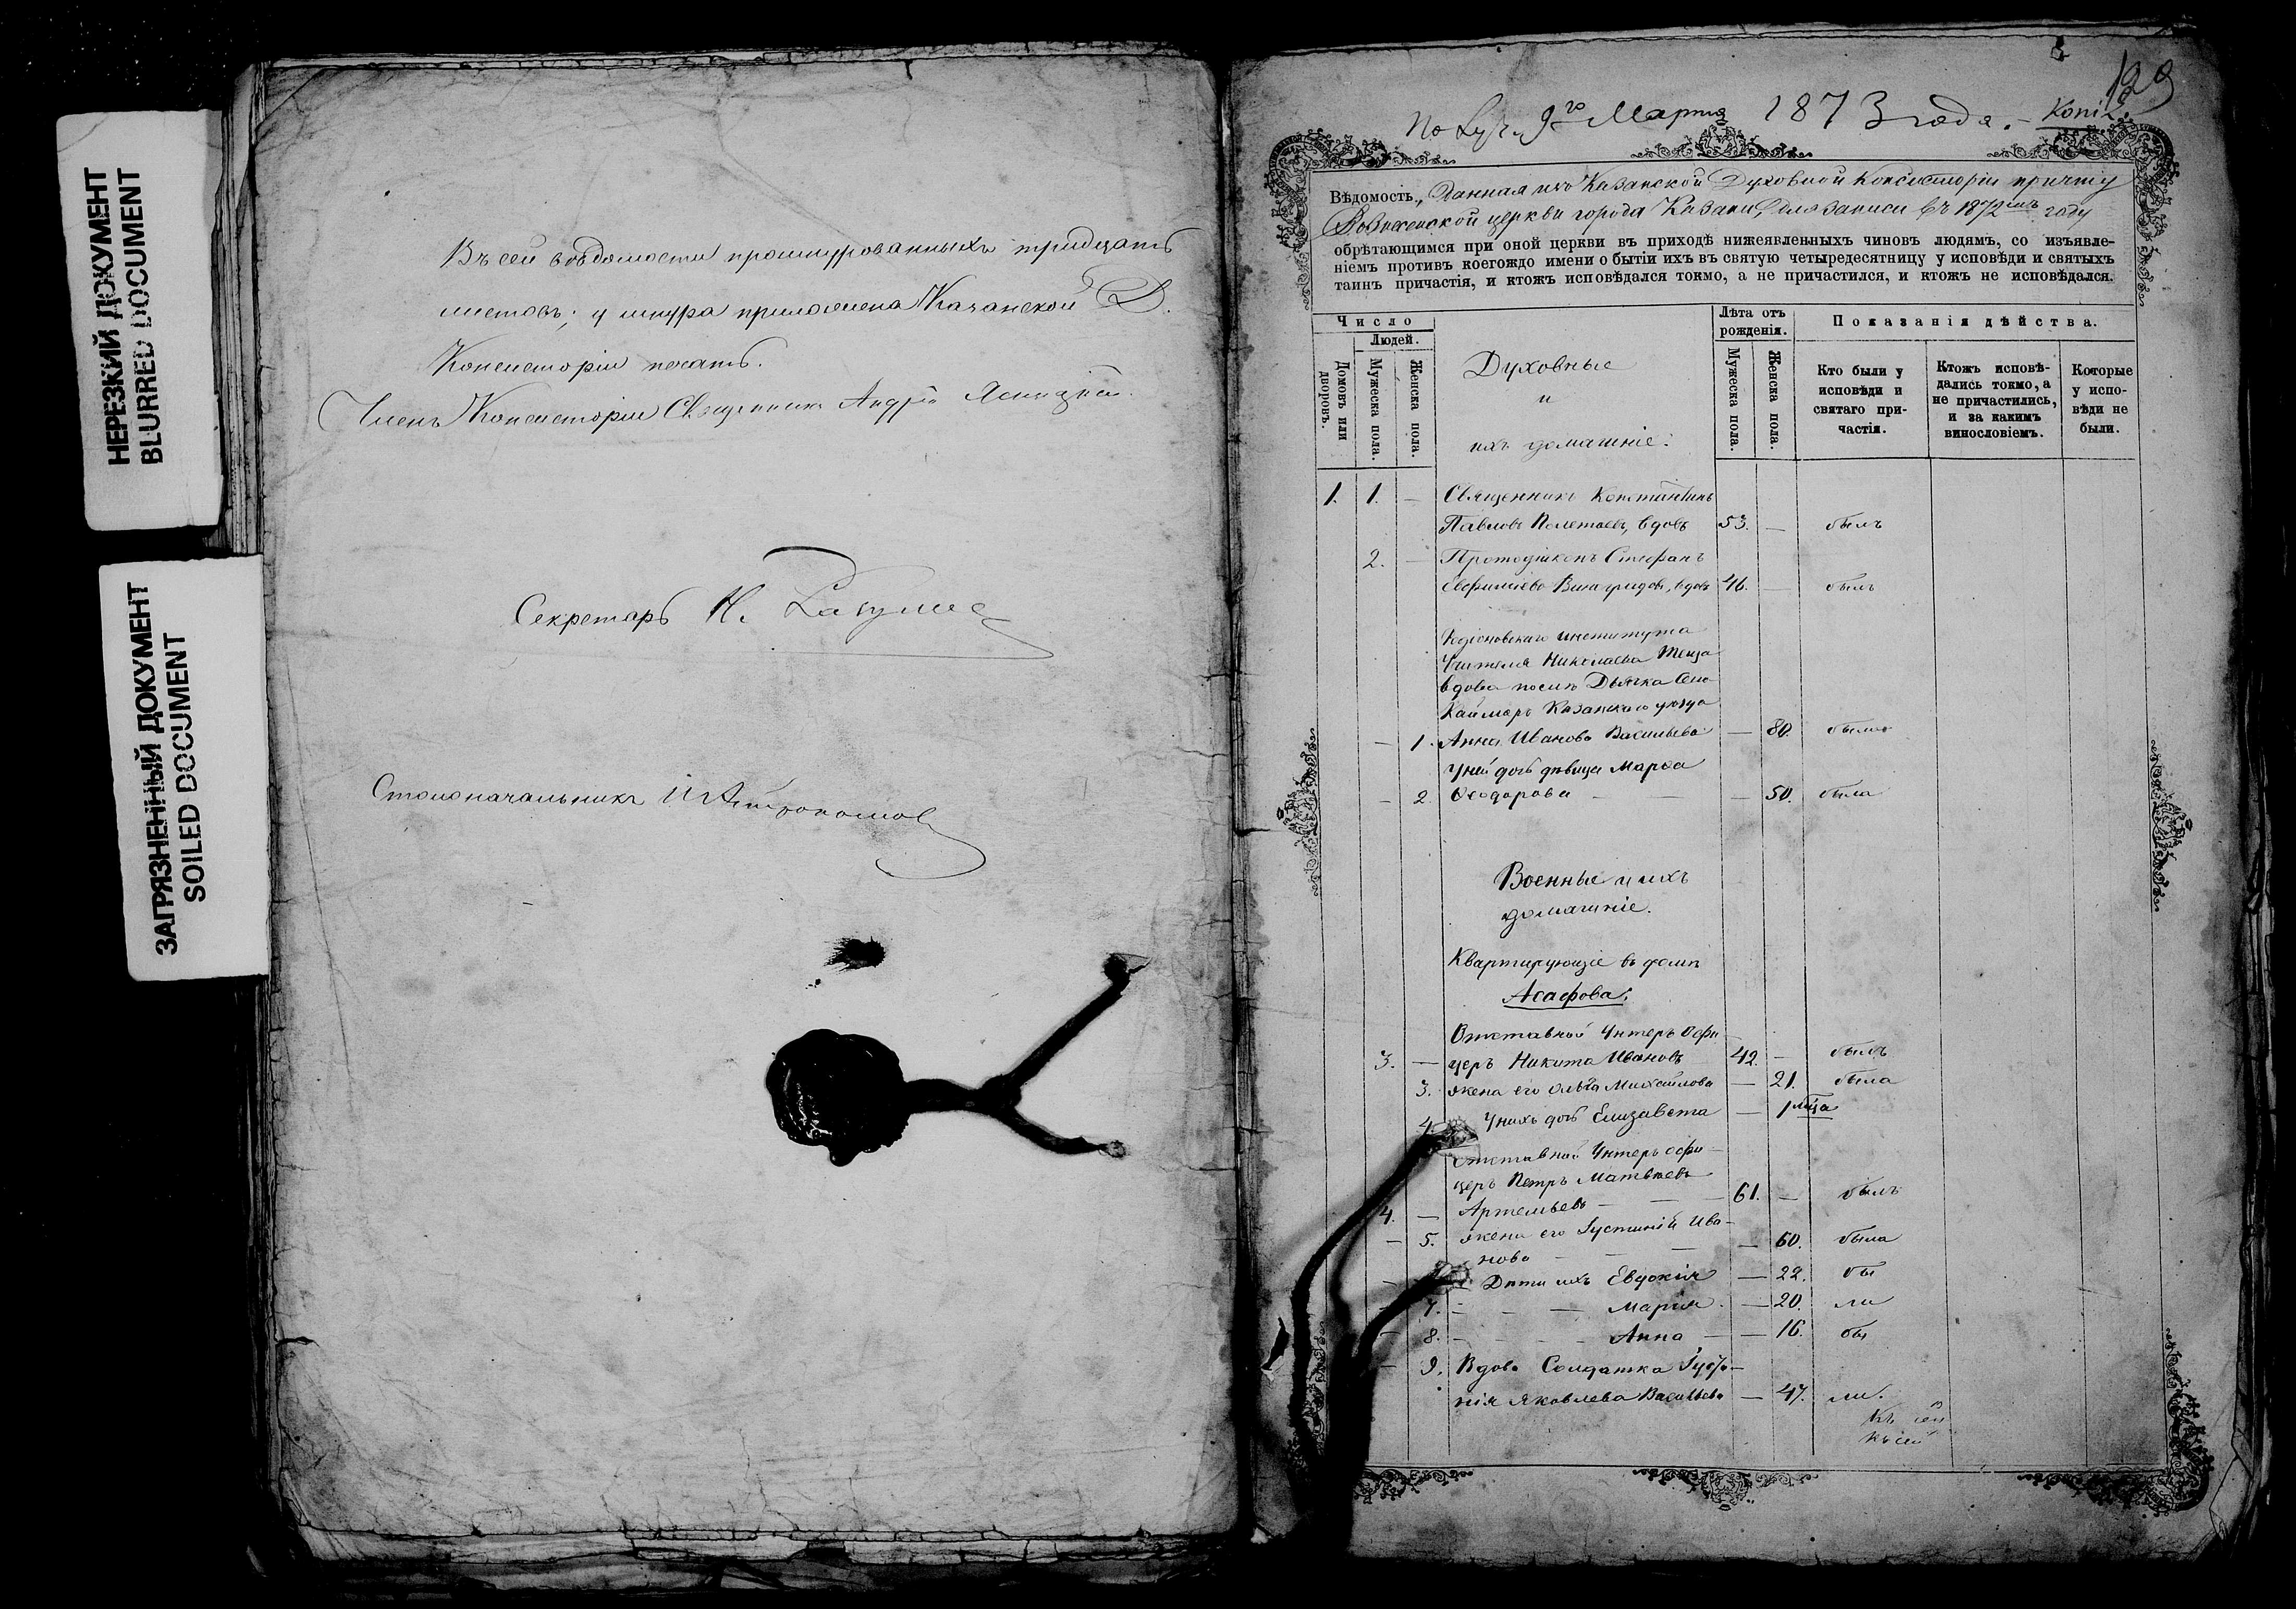 НЕРЕЗКИЙ ДОКУМЕНТ
BLURRED DOCUMENT
ЗАГРЯЗНЕННЫЙ ДОКУМЕНТ
SOILED DOCUMENT
Въ сей вѣдомости прошнурованныхъ тридцать
листовъ; у шнура приложена Казанской Д.
Консисторіи печать.
Членъ Консисторіи Священникъ Андрей
Секретарь Н.
Столоначальникъ
129
9го Марта 1873 года. - Копія.
Вѣдомость, Данная изъ Казанской Духовной Консисторіи причту
церкви города Казани, для записи въ 1872мъ году
обрѣтающимся при оной церкви въ приходѣ нижеявленныхъ чиновъ людямъ, со изъявле-
ніемъ противъ коегождо имени о бытіи ихъ въ святую четыредесятницу у исповѣди и святыхъ
таинъ причастія, и ктожъ исповѣдался токмо, а не причастился, и ктожъ не исповѣдался.
Число
Людей.
Домовъ или дворовъ.
Мужеска пола.
Женска пола.
Духовные
и
ихъ домашніе:
Лѣта отъ рожденія.
Мужеска пола.
Женска пола.
Показанія дѣйства.
Кто были у исповѣди и святаго причастія.
Ктожъ исповѣдались токмо, а не причастились, и за какимъ винословіемъ.
Которые у исповѣди не были.
1. 1. — Священникъ Константинъ
Павловъ Полетаевъ, вдовъ 53. — былъ
2. — Протодіаконъ Стефанъ
Евфиміевъ Виноградовъ, вдовъ 46. — былъ
Родіоновскаго института
Учителя Николаева Теща
вдова послѣ Дьячка Села
Каймаръ Казанскаго уѣзда
— 1. Анна Иванова Васильева — 80. была
У ней дочь дѣвица Марѳа
— 2. Ѳеодорова — — — 50. была
Военные и ихъ
домашніе.
Квартирующіе въ домѣ
Асафова.
Отставной Унтеръ Офи-
3. — церъ Никита Ивановъ 42. — былъ
3. жена его Ольга Михайлова — 21. была
4. У нихъ дочь Елизавета — 1 мѣсца
Отставной Унтеръ офи-
церъ Петръ Матвѣевъ
4. — Артемьевъ — — 61. — былъ
— 5. жена его Іустинія Ива-
нова — — — 60. была
— Дѣти ихъ Евдокія — 22. бы
— 7. — — — Марія — 20. ли
— 8. — — — Анна — — 16. бы
— 9. Вдова Солдатка
нія Яковлева Васильева — 47. ли.
Къ сей
къ сей